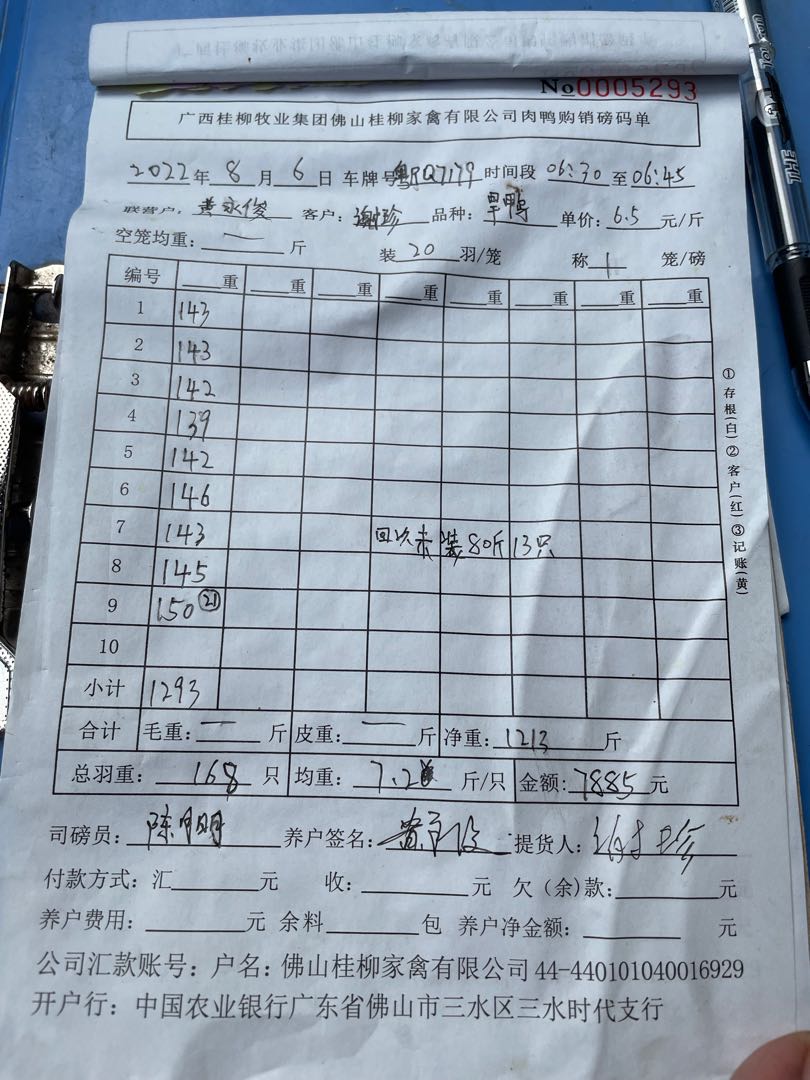 No0005293
广西桂柳牧业集团佛山桂柳家禽有限公司肉鸭购销磅码单
2022年 8 月 6 日 车牌号粤RQ7179 时间段 06:30 至 06:45
联营户: 黄永俊 客户: 谢珍 品种: 旱鸭 单价: 6.5 元/斤
空笼均重: — 斤 装 20 羽/笼 称 1 笼/磅
编号 重 重 重 重 重 重 重 重
1 143
2 143
3 142
4 139
5 142
6 146
7 143 回以未装80斤13只
8 145
9 150 21
10
小计 1293
合计 毛重: — 斤 皮重: — 斤 净重: 1213 斤
总羽重: 168 只 均重: 7.2 斤/只 金额: 7885 元
司磅员: 陈明明 养户签名: 提货人:
付款方式: 汇 元 收: 元 欠(余)款: 元
养户费用: 元 余料 包 养户净金额: 元
公司汇款账号: 户名: 佛山桂柳家禽有限公司 44-440101040016929
开户行: 中国农业银行广东省佛山市三水区三水时代支行
①存根(白)②客户(红)③记账(黄)